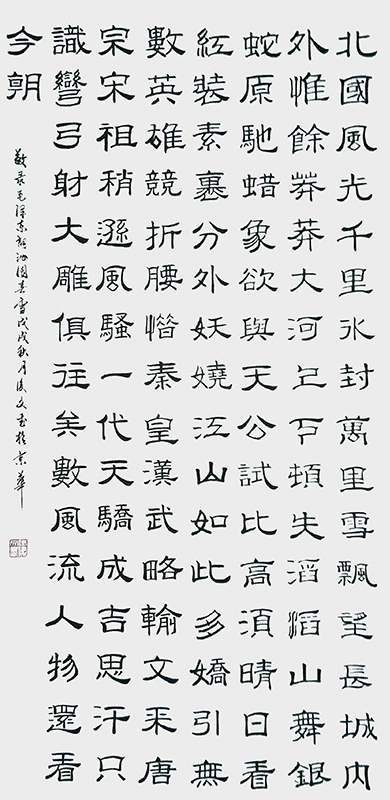 北國風光千里冰封萬里雪飄望長城內
外惟餘莽莽大河上下頓失滔滔山舞銀
蛇原馳蜡象欲與天公試比高須晴日看
紅裝素裹分外妖嬈江山如此多嬌引無
數英雄競折腰惜秦皇漢武略輸文采唐
宗宋祖稍遜風騷一代天驕成吉思汗只
識彎弓射大雕俱往矣數風流人物還看
今朝
敬录毛澤东詞沁园春雪戊戌秋月文书於京華